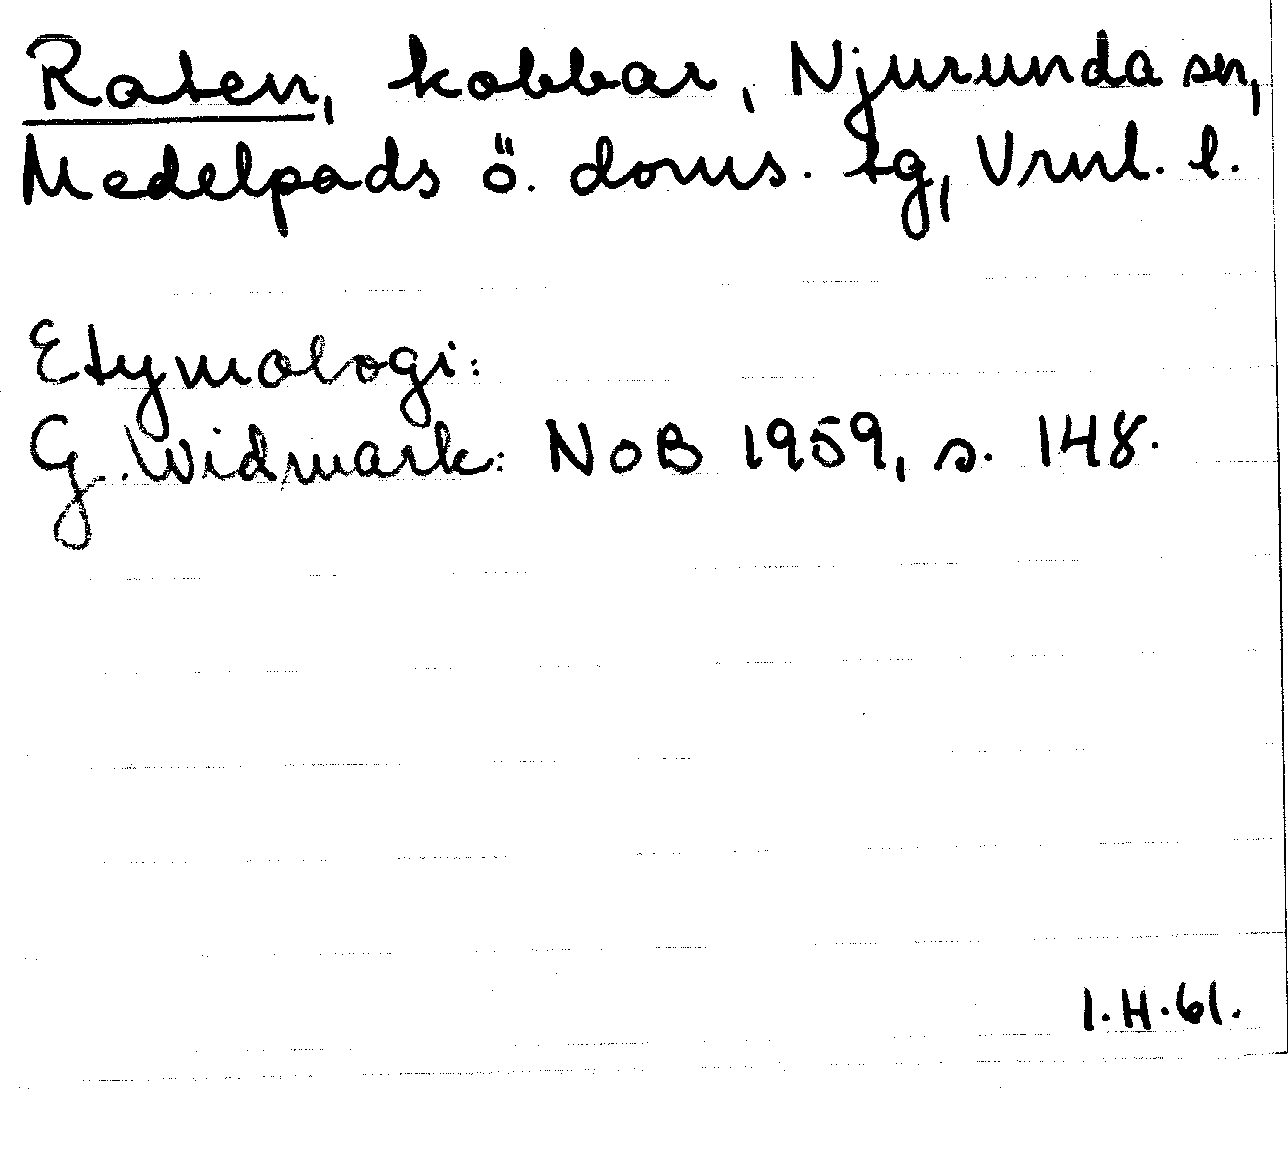 Raten, kobbar, Njurunda sn,
Medelpads ö. doms. tg, Vrnl. l.
Etymologi:
G. Widmark: NoB 1959, s. 148.
I.H.61.